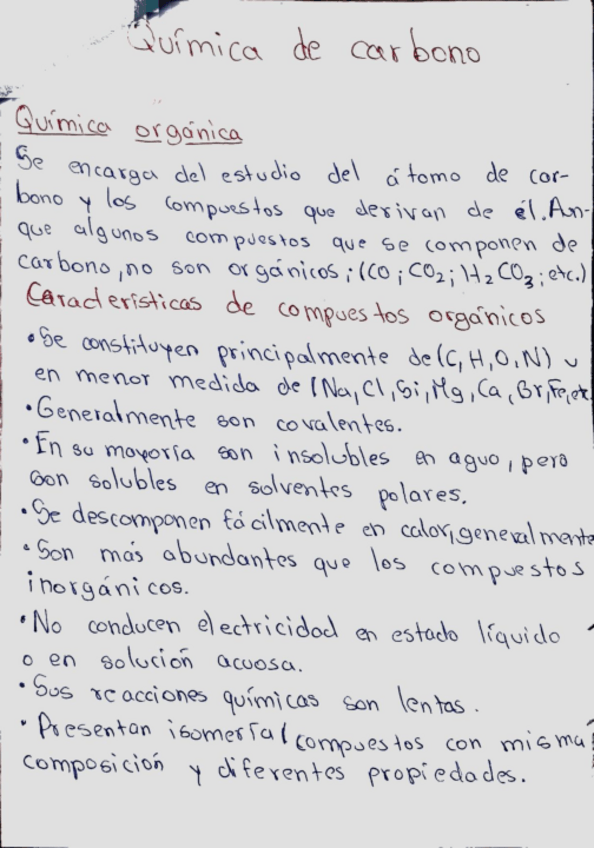 Química de carbono
Química orgánica
Se encarga del estudio del átomo de car-
bono y los compuestos que derivan de él. Aun-
que algunos compuestos que se componen de
carbono, no son orgánicos; (CO; CO₂; H₂CO₃; etc.)
Características de compuestos orgánicos
•Se constituyen principalmente de (C, H, O, N) y
en menor medida de (Na, Cl, Si, Mg, Ca, Br, Fe, etc
•Generalmente son covalentes.
•En su mayoría son insolubles en agua, pero
son solubles en solventes polares.
•Se descomponen fácilmente en calor, generalmente
•Son más abundantes que los compuestos
inorgánicos.
•No conducen electricidad en estado líquido
o en solución acuosa.
•Sus reacciones químicas son lentas.
•Presentan isomería (compuestos con misma
composición y diferentes propiedades.